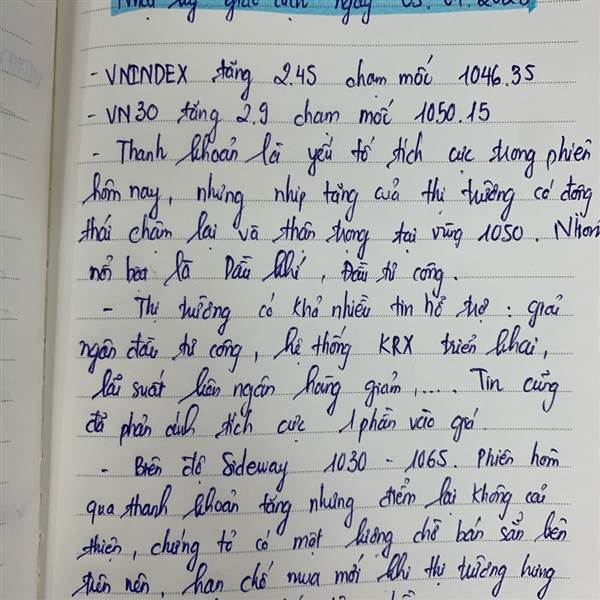 Nhật ký giao dịch ngày 05.01.2023
- VNINDEX tăng 2.45 chạm mốc 1046.35
- VN30 tăng 2.9 chạm mốc 1050.15
- Thanh khoản là yếu tố tích cực trong phiên
hôm nay, nhưng nhịp tăng của thị trường có động
thái chậm lại và thận trọng tại vùng 1050. Nhóm
nổi bật là Dầu khí, Đầu tư công.
- Thị trường có khá nhiều tin hỗ trợ : giải
ngân đầu tư công, hệ thống KRX triển khai,
lãi suất liên ngân hàng giảm,.... Tin cũng
đã phản ánh tích cực 1 phần vào giá.
- Biên độ Sideway 1030 - 1065. Phiên hôm
qua thanh khoản tăng nhưng điểm lại không cải
thiện, chứng tỏ có một lượng chờ bán sẵn bên
trên nên, hạn chế mua mới khi thị trường hưng